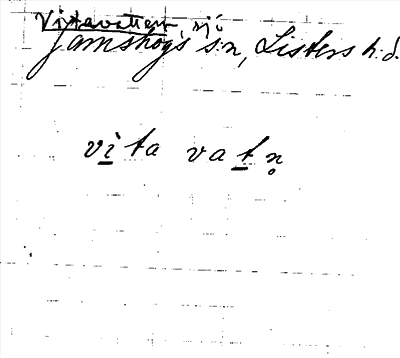 Vitavatten, sjö
Jämshögs sn, Listers h.d.
vi̲ta vat̲n̥